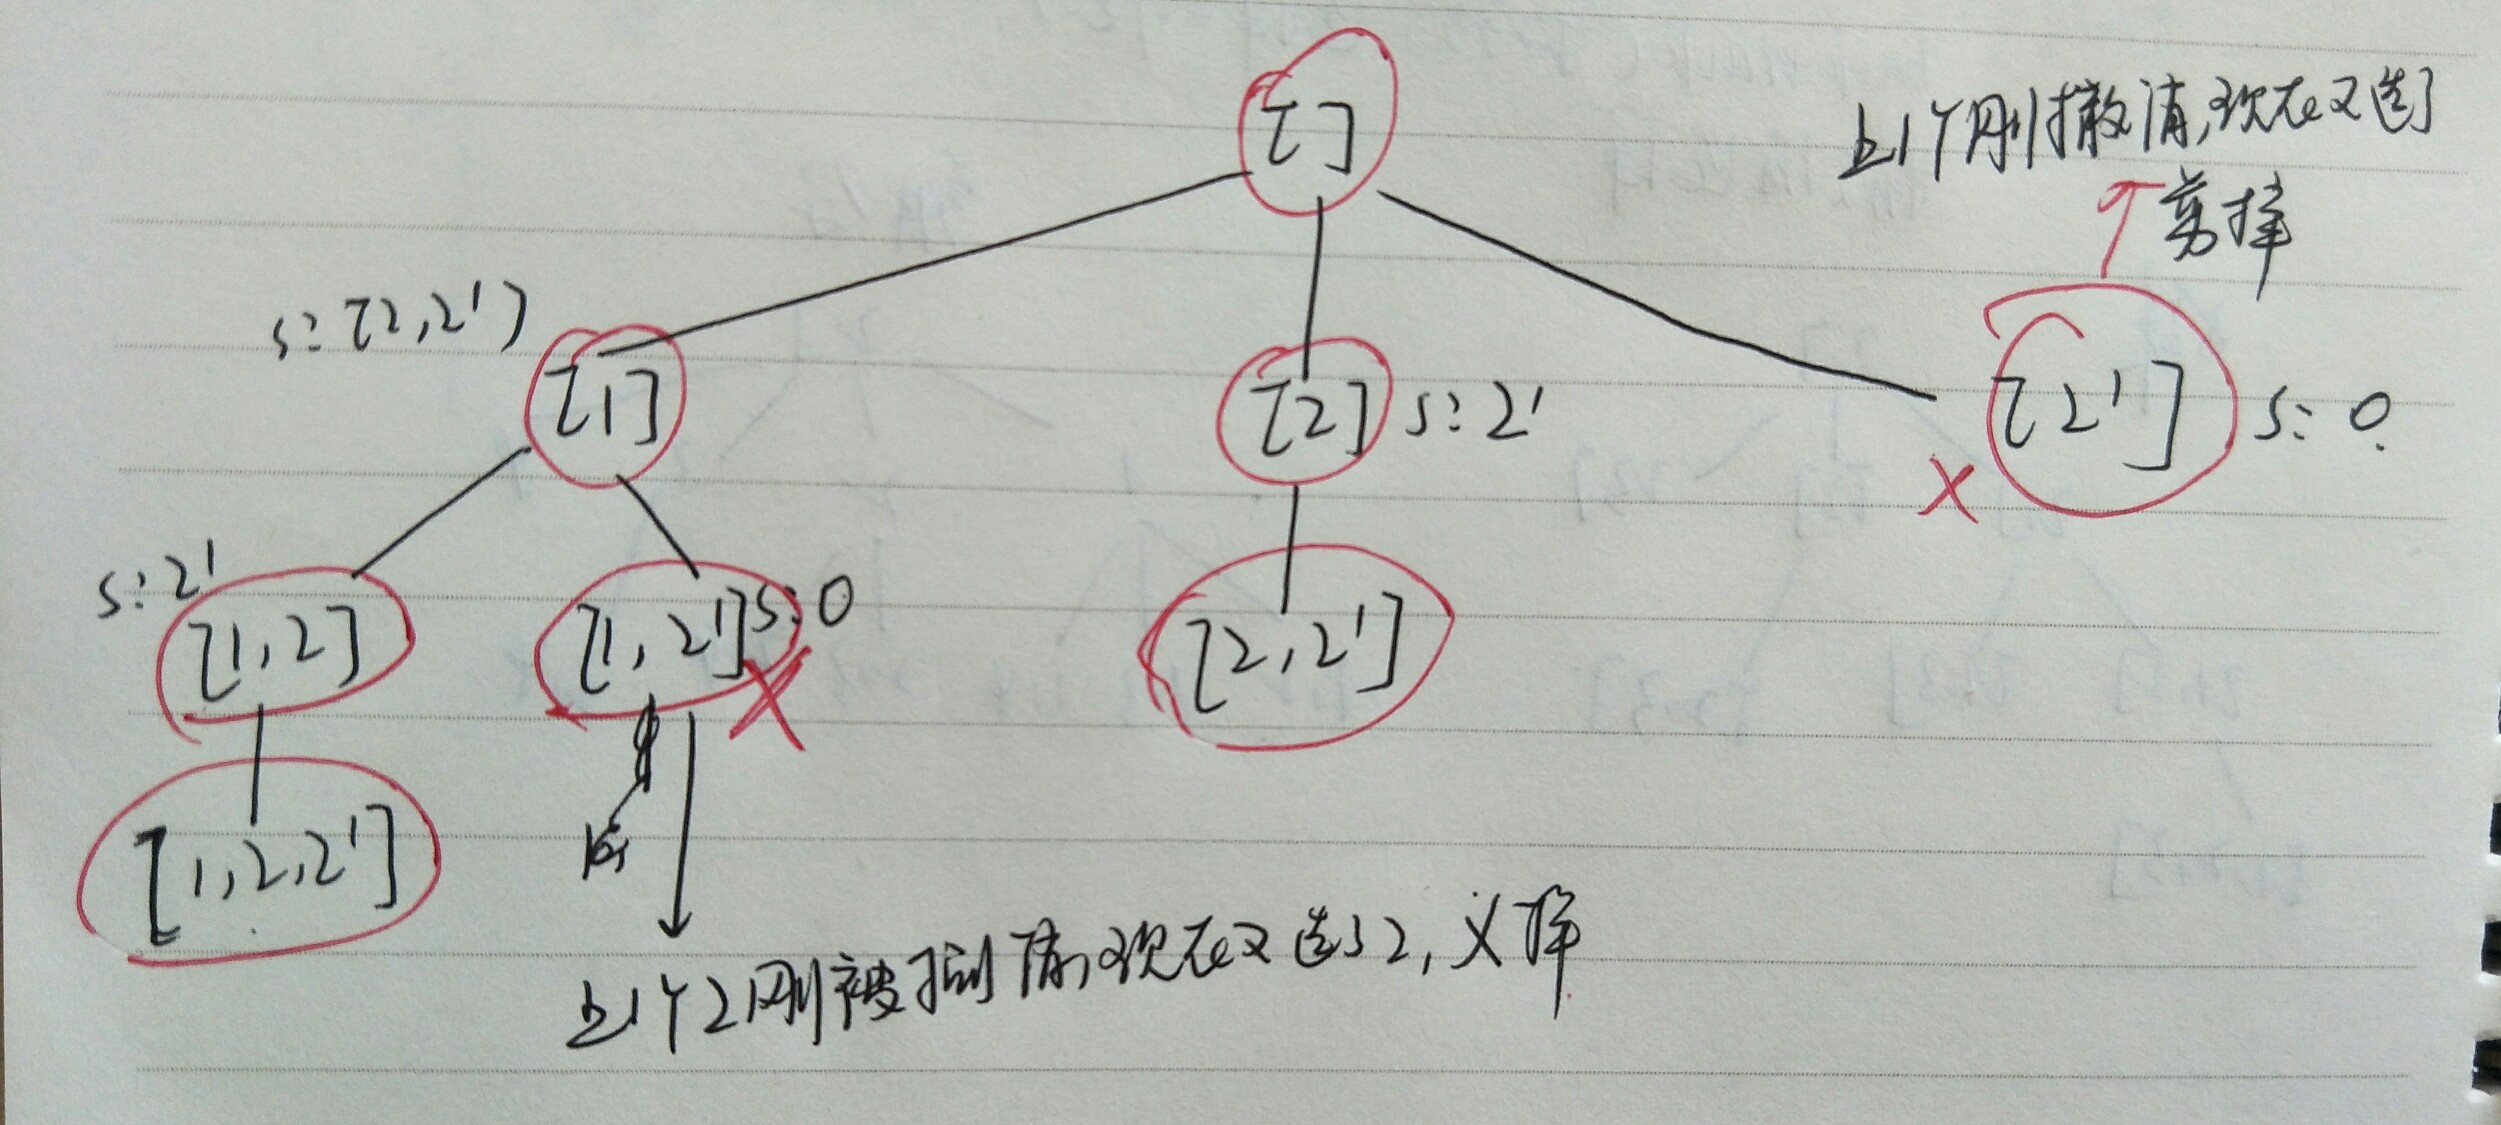 [ ]
上1个刚撤消,现在又选了
剪掉
s: [2,2')
[1]
[2] s: 2'
[2'] s: 0
s: 2'
[1,2]
[1,2'] s: 0
[2,2']
[1,2,2']
上1个2刚被撤消,现在又选了2,